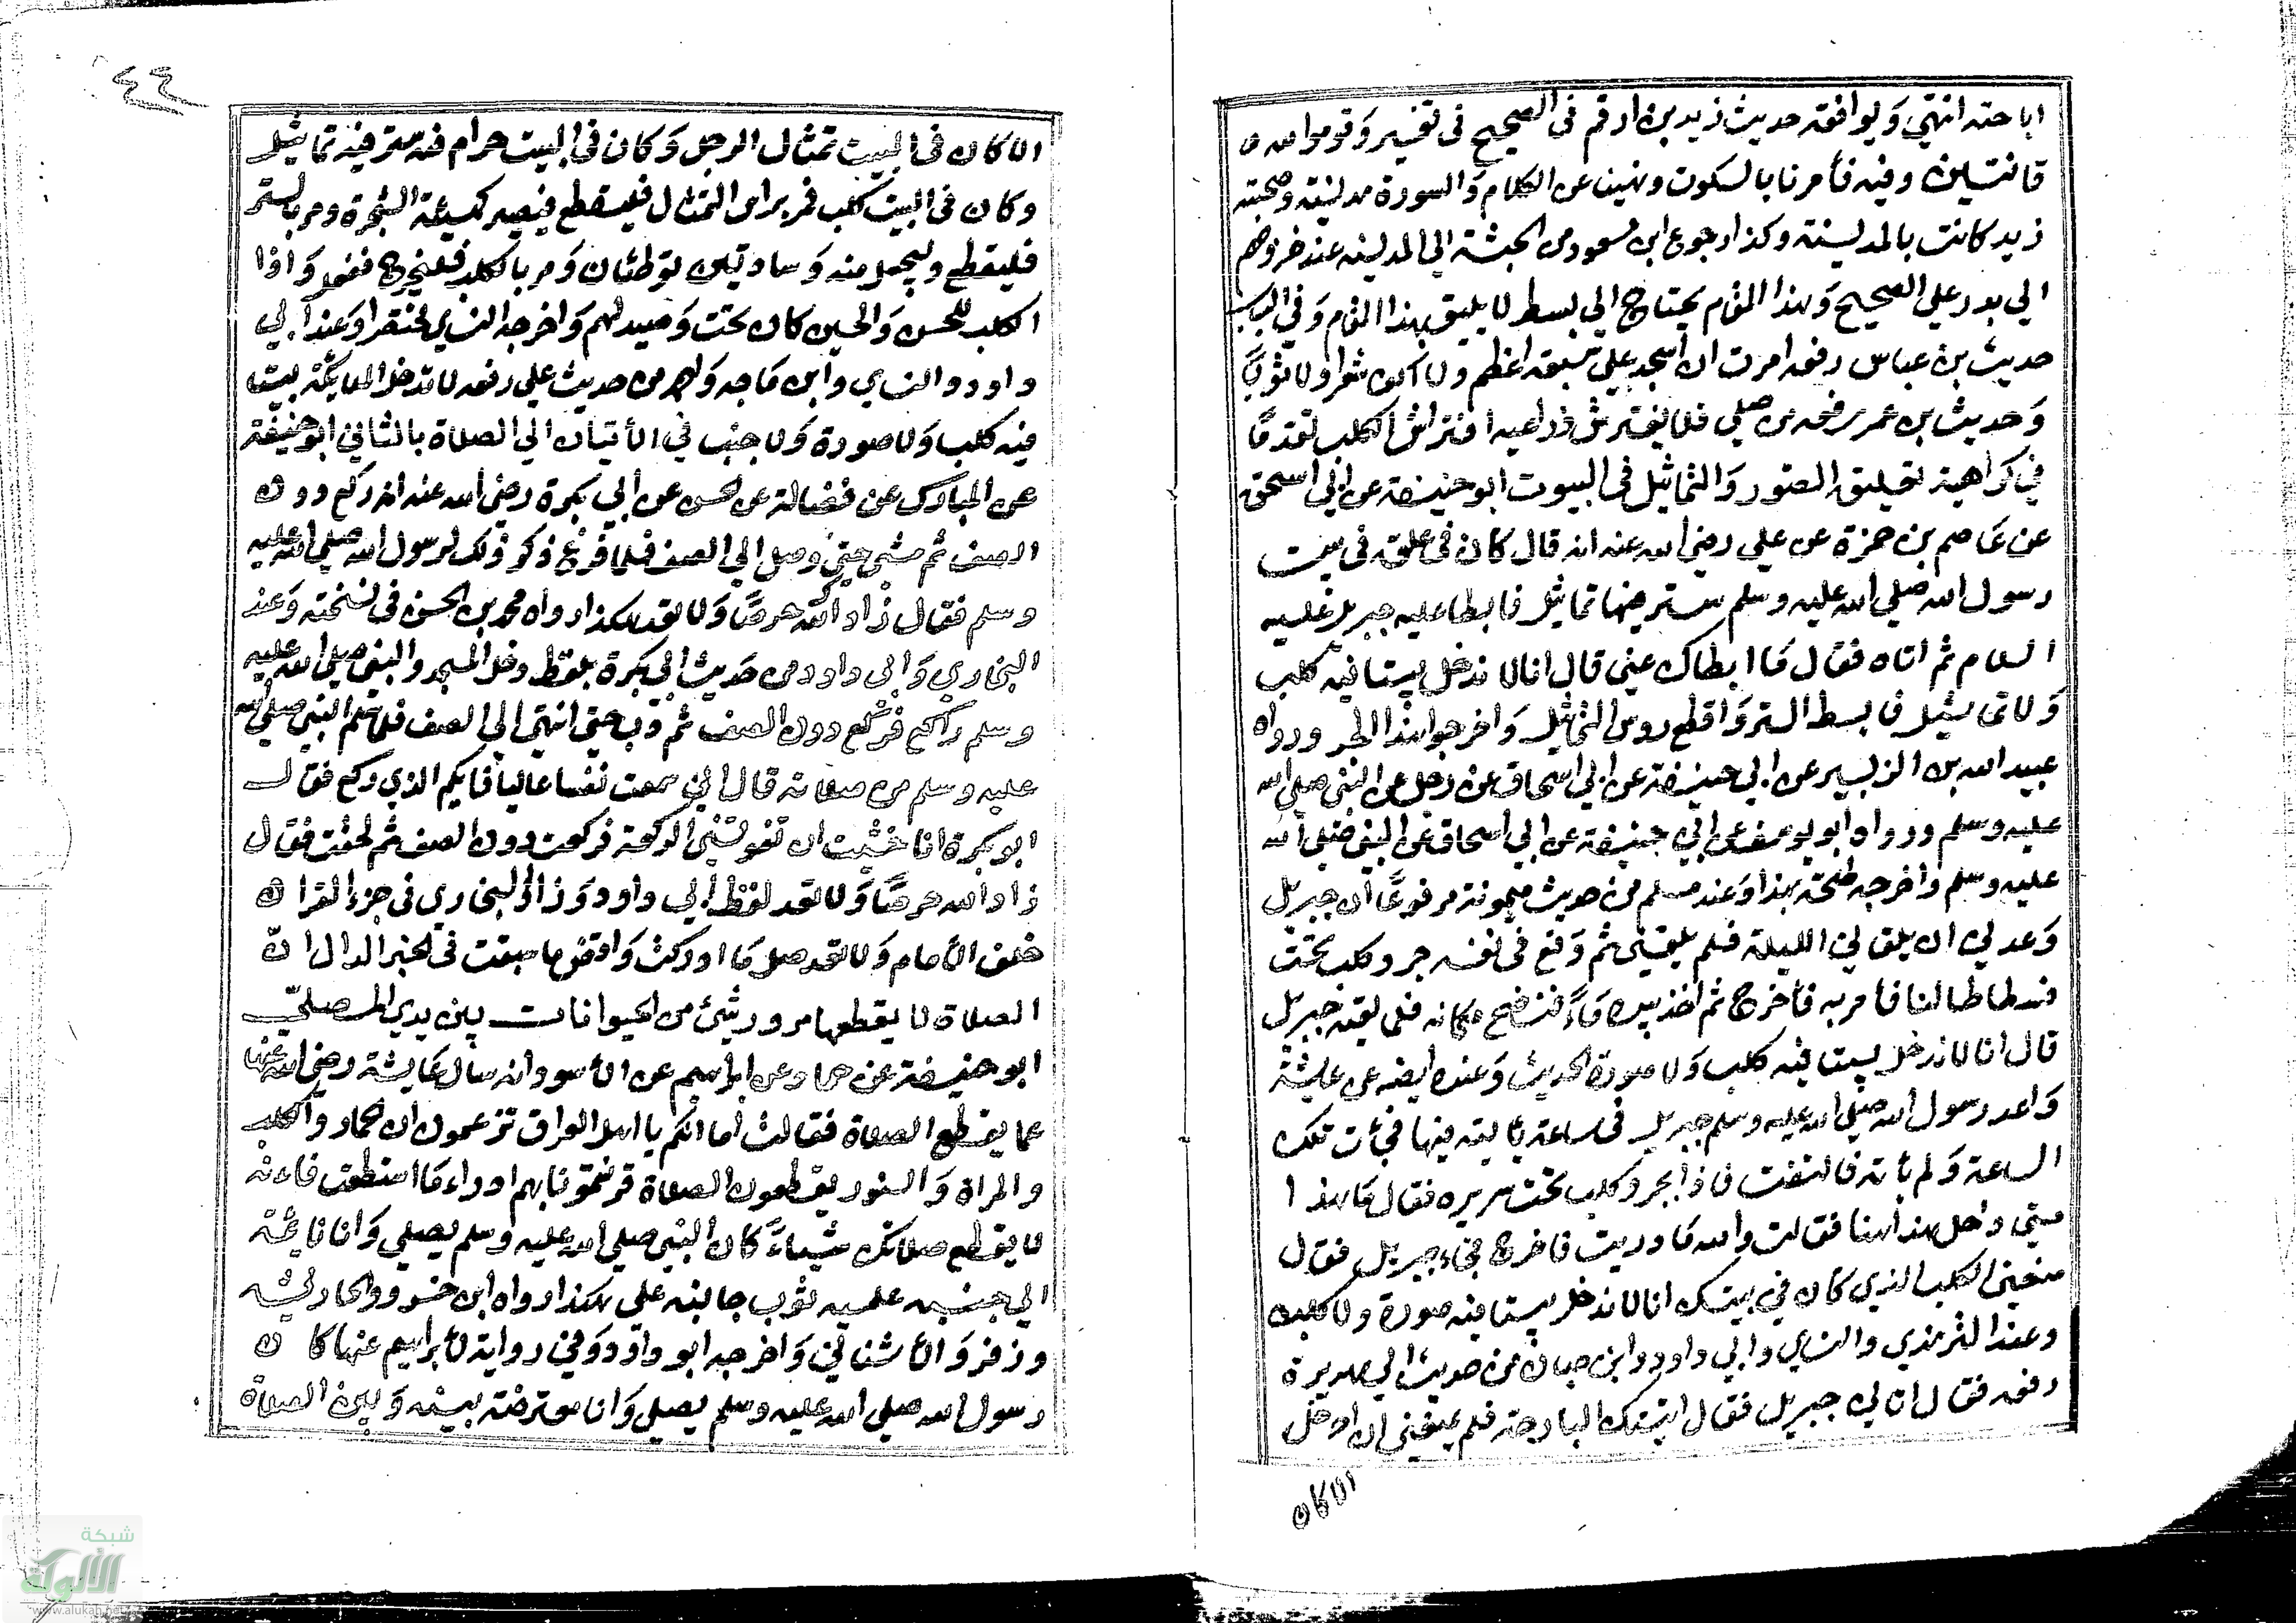 اباحته انتهى ويوافقه حديث زيد بن ارقم في الصحيح في تفسير وقوموا لله
قانتين وفيه فأمرنا بالسكوت ونهينا عن الكلام والسورة مدنية وصحبته
زيد كانت بالمدينة وكذا رجوع ابن مسعود من الحبشة الي المدينه عند خروجهم
الي بدر علي الصحيح وهذا المقام يحتاج الي بسط لا يليق بهذا المقام وفي الباب
حديث بن عباس رفعه امرت ان اسجد علي سبعة اعظم ولا اكف شعرا ولا ثوبا
وحديث بن عمر رفعه من صلي فلا يفترش ذراعيه افتراش الكلب تقدما
في كراهية تعليق الصور والتماثيل في البيوت ابو حنيفة عن ابي اسحق
عن عاصم بن حمزة عن علي رضي الله عنه انه قال كان في علق في بيت
رسول الله صلي الله عليه وسلم ستر فيها تماثيل فابطا عليه جبريل عليه
السلام ثم اتاه فقال ما ابطاك عني قال انا لا ندخل بيتا فيه كلب
ولا تماثيل فابسط الستر واقطع روس التماثيل واخرجوا هذا الجرو رواه
عبيد الله بن الزبير عن ابي حنيفة عن ابي اسحاق عن رجل عن النبي صلي الله
عليه وسلم ورواه ابو يوسف عن ابي حنيفة عن ابي اسحاق عن النبي صلي الله
عليه وسلم واخرجه طلحة بهذا وعند مسلم من حديث ميمونة مرفوعا ان جبريل
وعدني ان يلقاني الليلة فلم يلقني ثم وقع في نفسه جرو كلب تحت
فسطاطا لنا فامر به فأخرج ثم اخذ بيده ماء فنضح مكانه فلما لقيه جبريل
قال انا لا ندخل بيتا فيه كلب ولا صورة الحديث وعنده ايضه عن عايشة
واعد رسول الله صلي الله عليه وسلم جبريل في ساعة يأتيه فيها فجأت تلك
الساعة ولم يأته فالتفت فاذا بجرو كلب تحت سريره فقال ما هذا
متي دخل هذا هنا فقالت والله ما دريت فاخرج فجاء جبريل فقال
منعني الكلب الذي كان في بيتك انا لا ندخل بيتا فيه صورة ولا كلب
وعند الترمذي والنساي وابي داود وابن حبان من حديث ابي هريرة
رفعه فقال اتاني جبريل فقال اتيتك البارحة فلم يمنعني ان ادخل
الا كان
٤٤
الا كان في البيت تمثال الرجل وكان في البيت حرام فيه ستر فيه تماثيل
وكان في البيت كلب فمر براس التمثال فليقطع فيصير كهيئة الشجرة ومر بالستر
فليقطع وليجعل منه وسادتين توطئان ومر بالكلب فليخرج ففعل واذا
الكلب للحسن والحسين كان تحت نضيد لهم واخرجه النساي مختصرا وعند ابي
داود والنساي وابن ماجه ولهم من حديث علي رفعه لا تدخل الملايكة بيتا
فيه كلب ولا صورة ولا جنب في الأتيان الي الصلاة بالثاني ابو حنيفة
عن المبارك عن فضالة عن الحسن عن ابي بكرة رضي الله عنه انه ركع دون
الصف ثم مشي حتي وصل الي الصف فلما فرغ ذكر ذلك لرسول الله صلي الله عليه
وسلم فقال زادك الله حرصا ولا تعد هكذا رواه محمد بن الحسن في نسخته وعند
البخاري وابي داود من حديث ابي بكرة بلفظ دخل المسجد والنبي صلي الله عليه
وسلم راكع فركع دون الصف ثم دب حتي انتهي الي الصف فلما سلم النبي صلي الله
عليه وسلم من صلاته قال اني سمعت نفسا عاليا فايكم الذي ركع فقال
ابو بكرة انا خشيت ان تفوتني الركعة فركعت دون الصف ثم لحقت فقال
زادك الله حرصا ولا تعد لفظ ابي داود وزاد البخاري في جزء القران
خلف الأمام ولا تعد صل ما ادركت واقض ما سبقت في الخبر الدال ان
الصلاة لا يقطعها مرور شيئ من الحيوانات بين يدي المصلي
ابو حنيفة عن حماد عن ابراهيم عن الأسود انه سأل عايشة رضي الله عنها
عما يقطع الصلاة فقالت اما انكم يا اهل العراق تزعمون ان الحمار والكلب
والمراة والسنور يقطعون الصلاة قرنتمونا بهم ادراء ما استطعت فانه
لا يقطع صلاتك شيئا كان النبي صلي الله عليه وسلم يصلي وانا نايمة
الي جنبه عليه ثوب جانبه علي هكذا رواه ابن خسرو والحارثي
وزفر والأشناني واخرجه ابو داود وفي رواية لأبراهيم عنها كان
رسول الله صلي الله عليه وسلم يصلي وانا معترضة بينه وبين الصلاة
شبكة
الألوكة
www.alukah.net